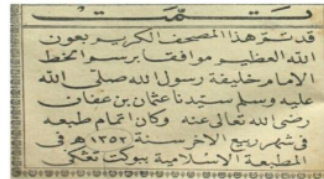 تمت
قد تم هذا المصحف الكريم بعون
الله العظيم موافقا برسم الخط
الامام خليفة رسول الله صلى الله
عليه وسلم سيدنا عثمان بن عفان
رضى الله تعالى عنه وكان اتمام طبعه
فى شهر ربيع الاخر سنة ١٣٥٢ ھ فى
المطبعة الاسلامية ببوكت تڠݢى